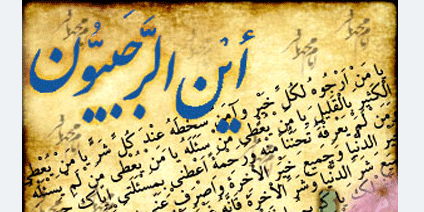 أيْنَ الرَّجَبيُّون
يا مَنْ أرْجُوهُ لِكُلِّ خَيْرٍ وَآمَنُ سَخَطَهُ عِنْدَ كُلِّ شَرٍّ يا مَنْ يُعْطِي
الْكَثيرَ بِالْقَليلِ يا مَنْ يُعْطي مَنْ سَئَلَهُ يا مَنْ يُعْطي مَنْ لَمْ يَسْئَلْهُ
وَمَنْ لَمْ يَعْرِفْهُ تَحَنُّناً مِنْهُ وَرَحْمَةً اَعْطِني بِمَسْئَلَتي اِيّاكَ
خَيْرِ الدُّنْيا وَجَميعَ خَيْرِ الاْخِرَةِ وَاصْرِفْ عَنّي
شَرِّ الدُّنْيا وَشَرِّ الاْخِرَةِ فَاِنَّهُ